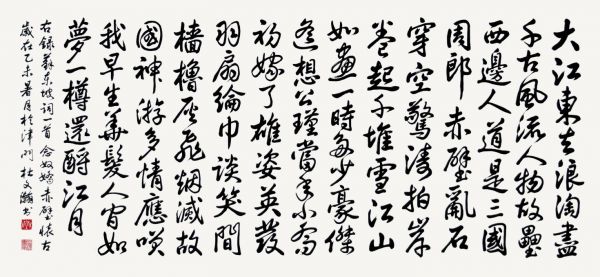 大江東去浪淘盡
千古風流人物故壘
西邊人道是三國
周郎赤壁亂石
穿空驚濤拍岸
卷起千堆雪江山
如畫一時多少豪傑
遙想公瑾當年小喬
初嫁了雄姿英發
羽扇綸巾談笑間
檣櫓灰飛烟滅故
國神游多情應咲
我早生華髮人間如
夢一樽還酹江月
右錄蘇东坡詞一首 念奴嬌赤壁懷古
歲在乙未暑月於津門 杜文書